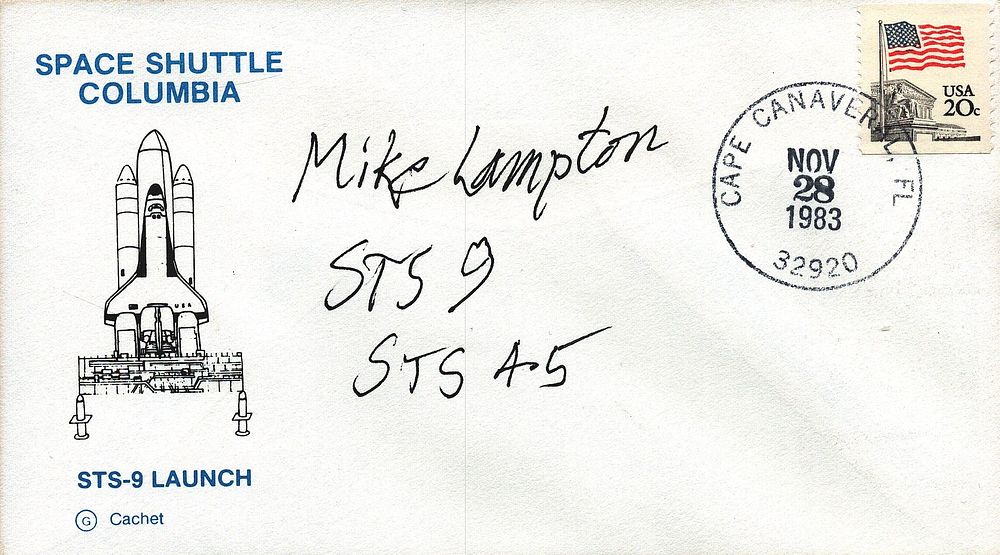 SPACE SHUTTLE
COLUMBIA
USA
STS-9 LAUNCH
G Cachet
Mike Lampton
STS 9
STS 45
USA
20c
CAPE CANAVERAL, FL
NOV
28
1983
32920